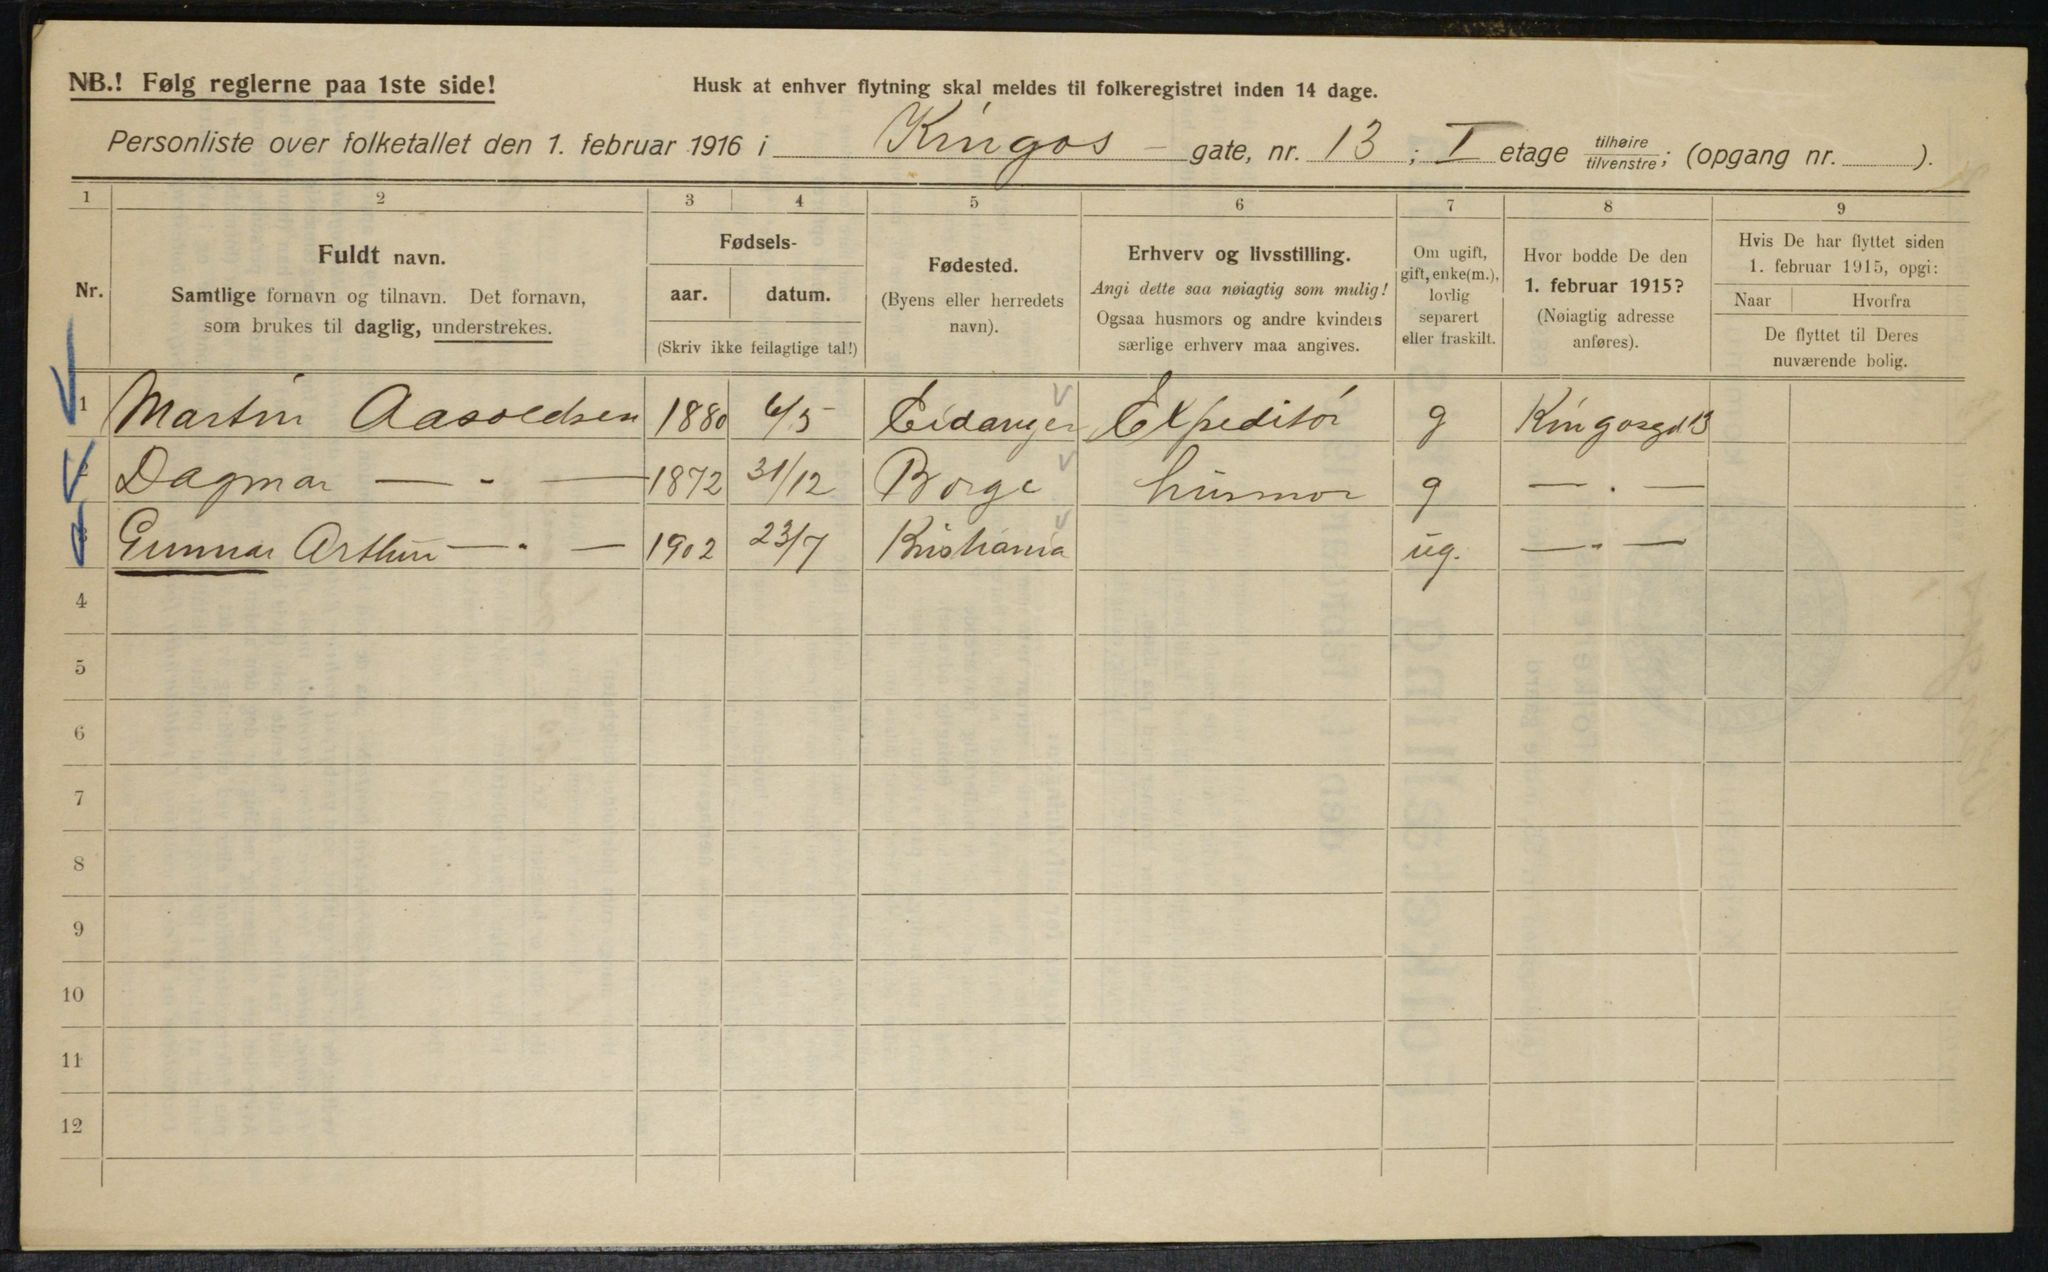 NB.! Følg reglerne paa 1ste side!
Husk at enhver flytning skal meldes til folkeregistret inden 14 dage.
Personliste over folketallet den 1. februar 1916 i Kingos - gate, nr. 13 ; I etage tilhøire/tilvenstre; (opgang nr. ).
1 2 3 4 5 6 7 8 9
Nr.
Fuldt navn.
Samtlige fornavn og tilnavn. Det fornavn,
som brukes til daglig, understrekes.
Fødsels-
aar. datum.
(Skriv ikke feilagtige tal!)
Fødested.
(Byens eller herredets
navn).
Erhverv og livsstilling.
Angi dette saa nøiagtig som mulig!
Ogsaa husmors og andre kvinders
særlige erhverv maa angives.
Om ugift,
gift, enke(m.),
lovlig
separert
eller fraskilt.
Hvor bodde De den
1. februar 1915?
(Nøiagtig adresse
anføres).
Hvis De har flyttet siden
1. februar 1915, opgi:
Naar Hvorfra
De flyttet til Deres
nuværende bolig.
1 Martin Aasoldsen 1880 6/5 Eidanger Expeditør g Kingosgd 13
2 Dagmar — - — 1872 31/12 Borge husmor g — . —
3 Gunnar Arthur — . — 1902 23/7 Kristiania ug. — . —
4
5
6
7
8
9
10
11
12